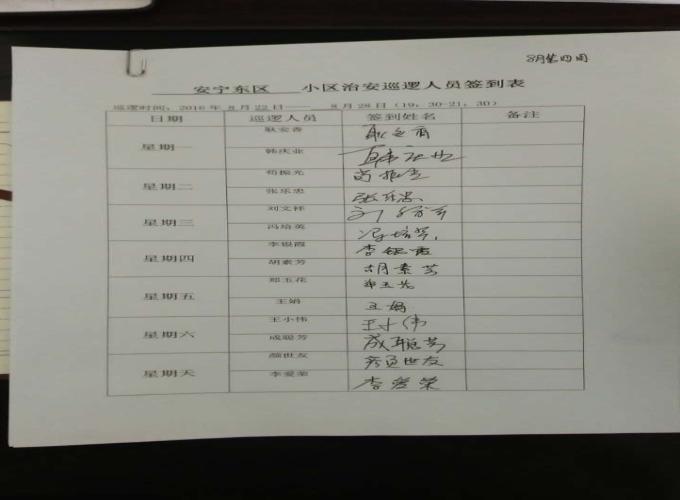 8月第四周
安宁东区 小区治安巡逻人员签到表
巡逻时间：2016 年 8 月 22 日—— 8 月 28 日（19：30-21：30）
日期 巡逻人员 签到姓名 备注
星期一 耿安香
韩庆业
星期二 苟振光
张乐忠 张乐忠
星期三 刘文祥
冯培英 冯培英
星期四 李银霞 李银霞
胡素芳 胡素芳
星期五 郑玉花
王娟 王娟
星期六 王小伟 王小伟
成聪芳 成聪芳
星期天 颜世友 颜世友
李爱荣 李爱荣